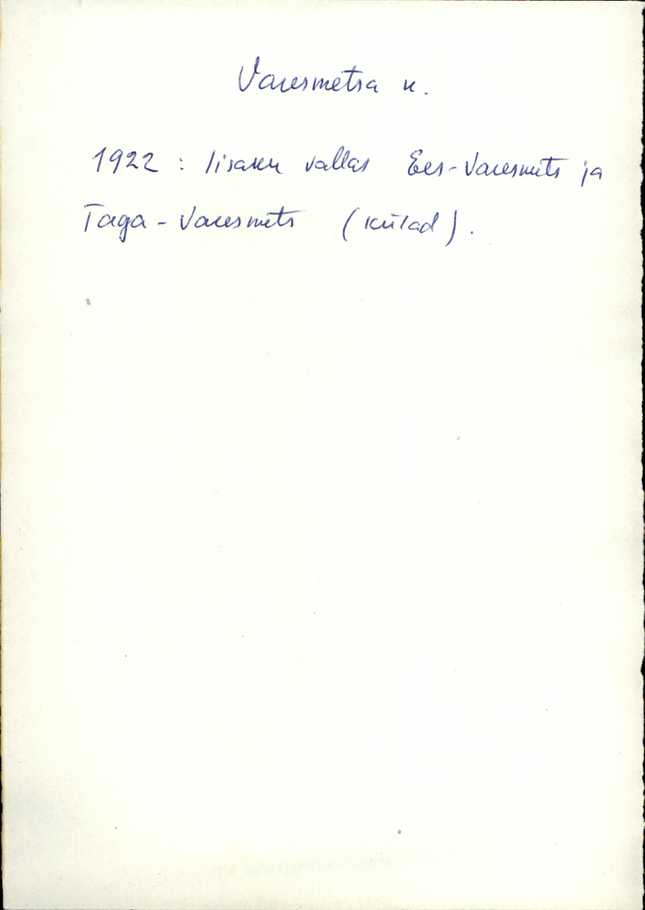 Varesmetsa k.
1922 : Iisaku vallas Ees-Varesmets ja
Taga-Varesmets (külad).